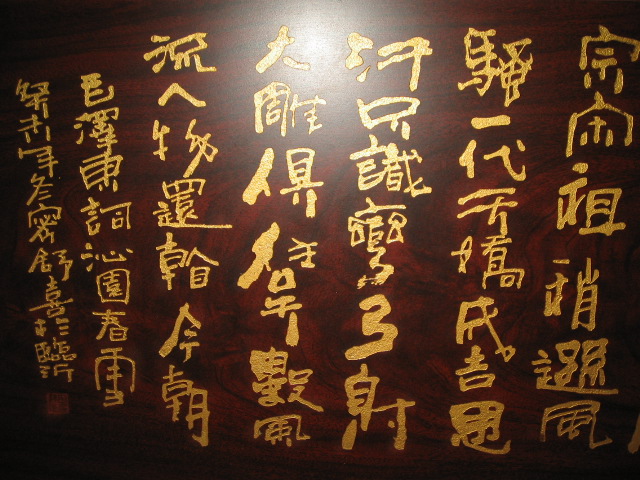 宗宋祖稍遜風
騷一代天嬌成吉思
汗只識彎弓射
大雕俱往矣數風
流人物還看今朝
毛澤東詞沁園春雪
癸未年冬舒喜於臨沂